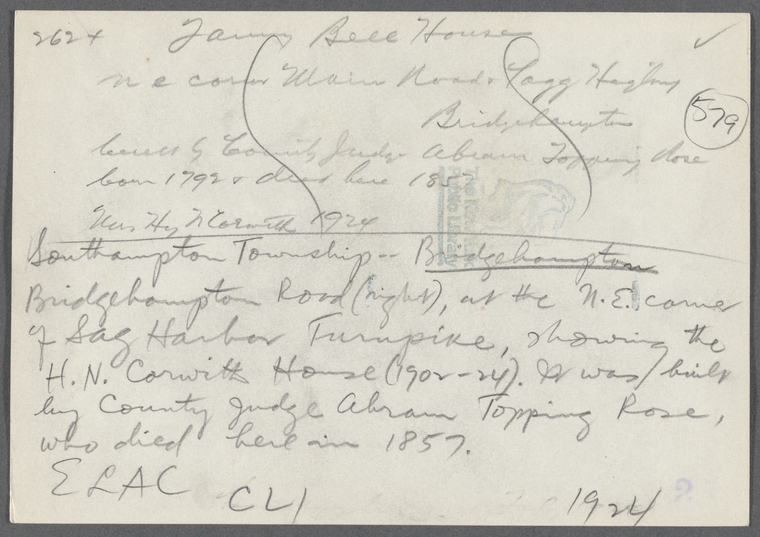 262+ Fanny Bell House
n e corner Main Road & Sagg Highway
Bridgehampton
579
built by County Judge Abram Topping Rose
born 1792 & died here 1857
Mrs Hy N Corwith 1924
Southampton Township -- Bridgehampton
Bridgehampton Road (right), at the N.E. corner
of Sag Harbor Turnpike, showing the
H. N. Corwith House (1902-24). It was built
by County Judge Abram Topping Rose,
who died here in 1857.
ELAC CLI 1924